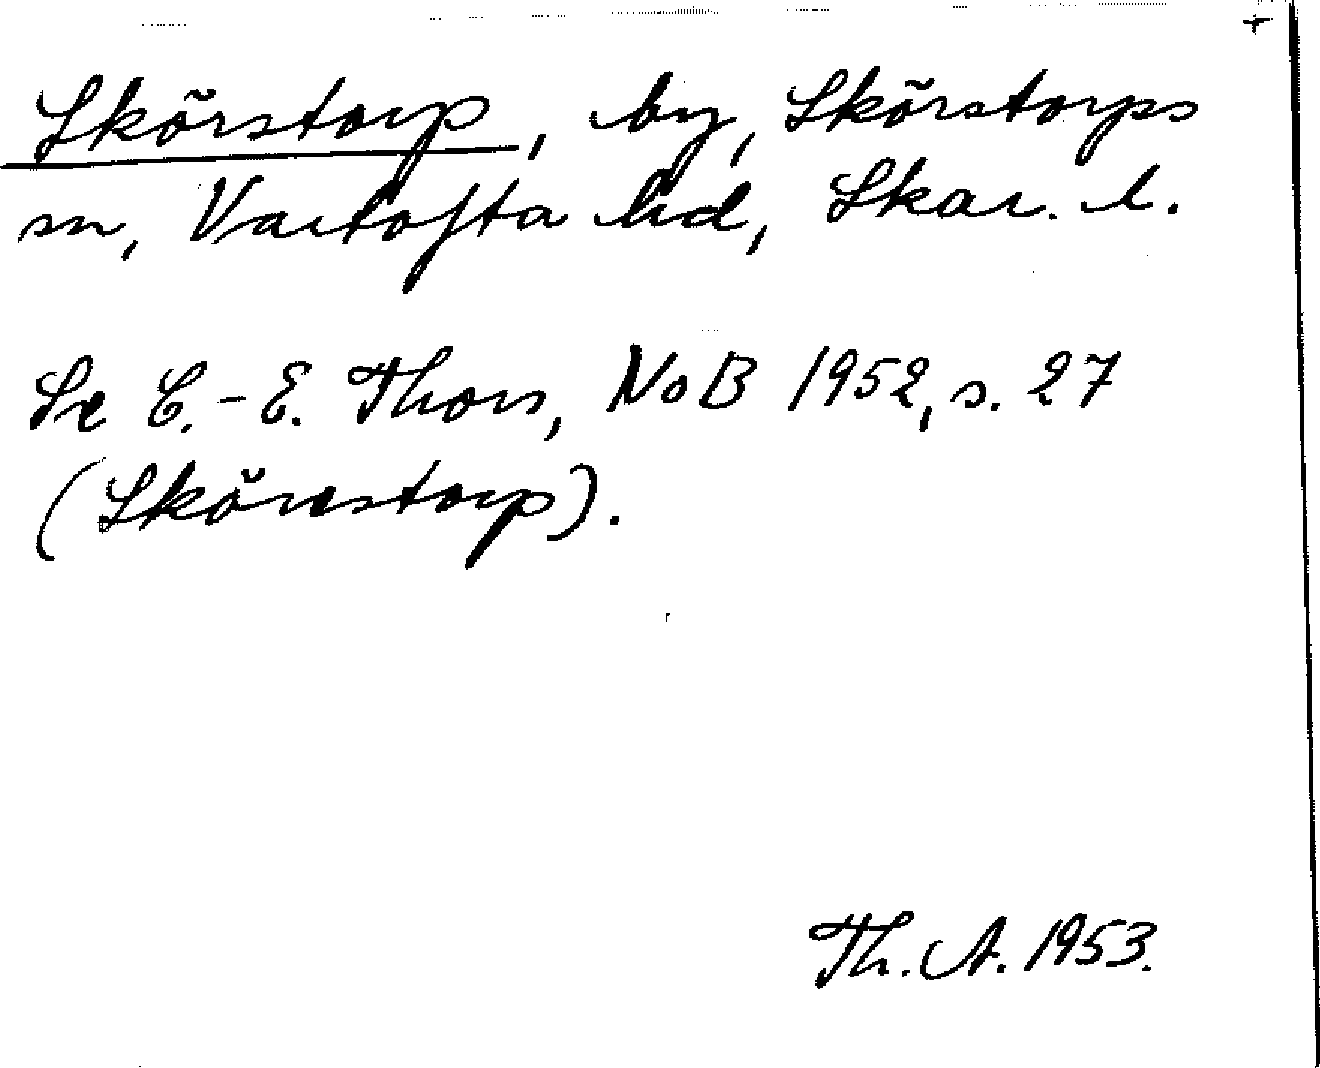 +
Skörstorp, by, Skörstorps
sn, Vartofta hd, Skar. l.
Se C.-E. Thors, NoB 1952, s. 27
(Skörestorp).
Th. A. 1953.